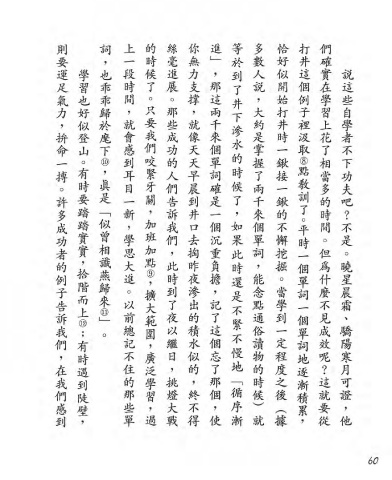 說這些自學者不下功夫吧？不是。曉星晨霜、驕陽寒月可證，他
們確實在學習上花了相當多的時間。但爲什麼不見成效呢？這就要從
打井這個例子裡汲取⑧點教訓了。平時一個單詞一個單詞地逐漸積累，
恰好似開始打井時一鍬接一鍬的不懈挖掘。當學到一定程度之後（據
多數人說，大約是掌握了兩千來個單詞，能念點通俗讀物的時候）就
等於到了井下滲水的時候了，如果此時還是不緊不慢地「循序漸
進」，那這兩千來個單詞確是一個沉重負擔，記了這個忘了那個，使
你無力支撐，就像天天早晨到井口去掏昨夜滲出的積水似的，終不得
絲毫進展。那些成功的人們告訴我們，此時到了夜以繼日，挑燈大戰
的時候了。只要我們咬緊牙關，加班加點⑨，擴大範圍，廣泛學習，過
上一段時間，就會感到耳目一新，學思大進。以前總記不住的那些單
詞，也乖乖歸於麾下⑩，眞是「似曾相識燕歸來⑪」。
學習也好似登山。有時要踏踏實實，拾階而上⑫：有時遇到陡壁，
則要運足氣力，拚命一搏。許多成功者的例子告訴我們，在我們感到
60